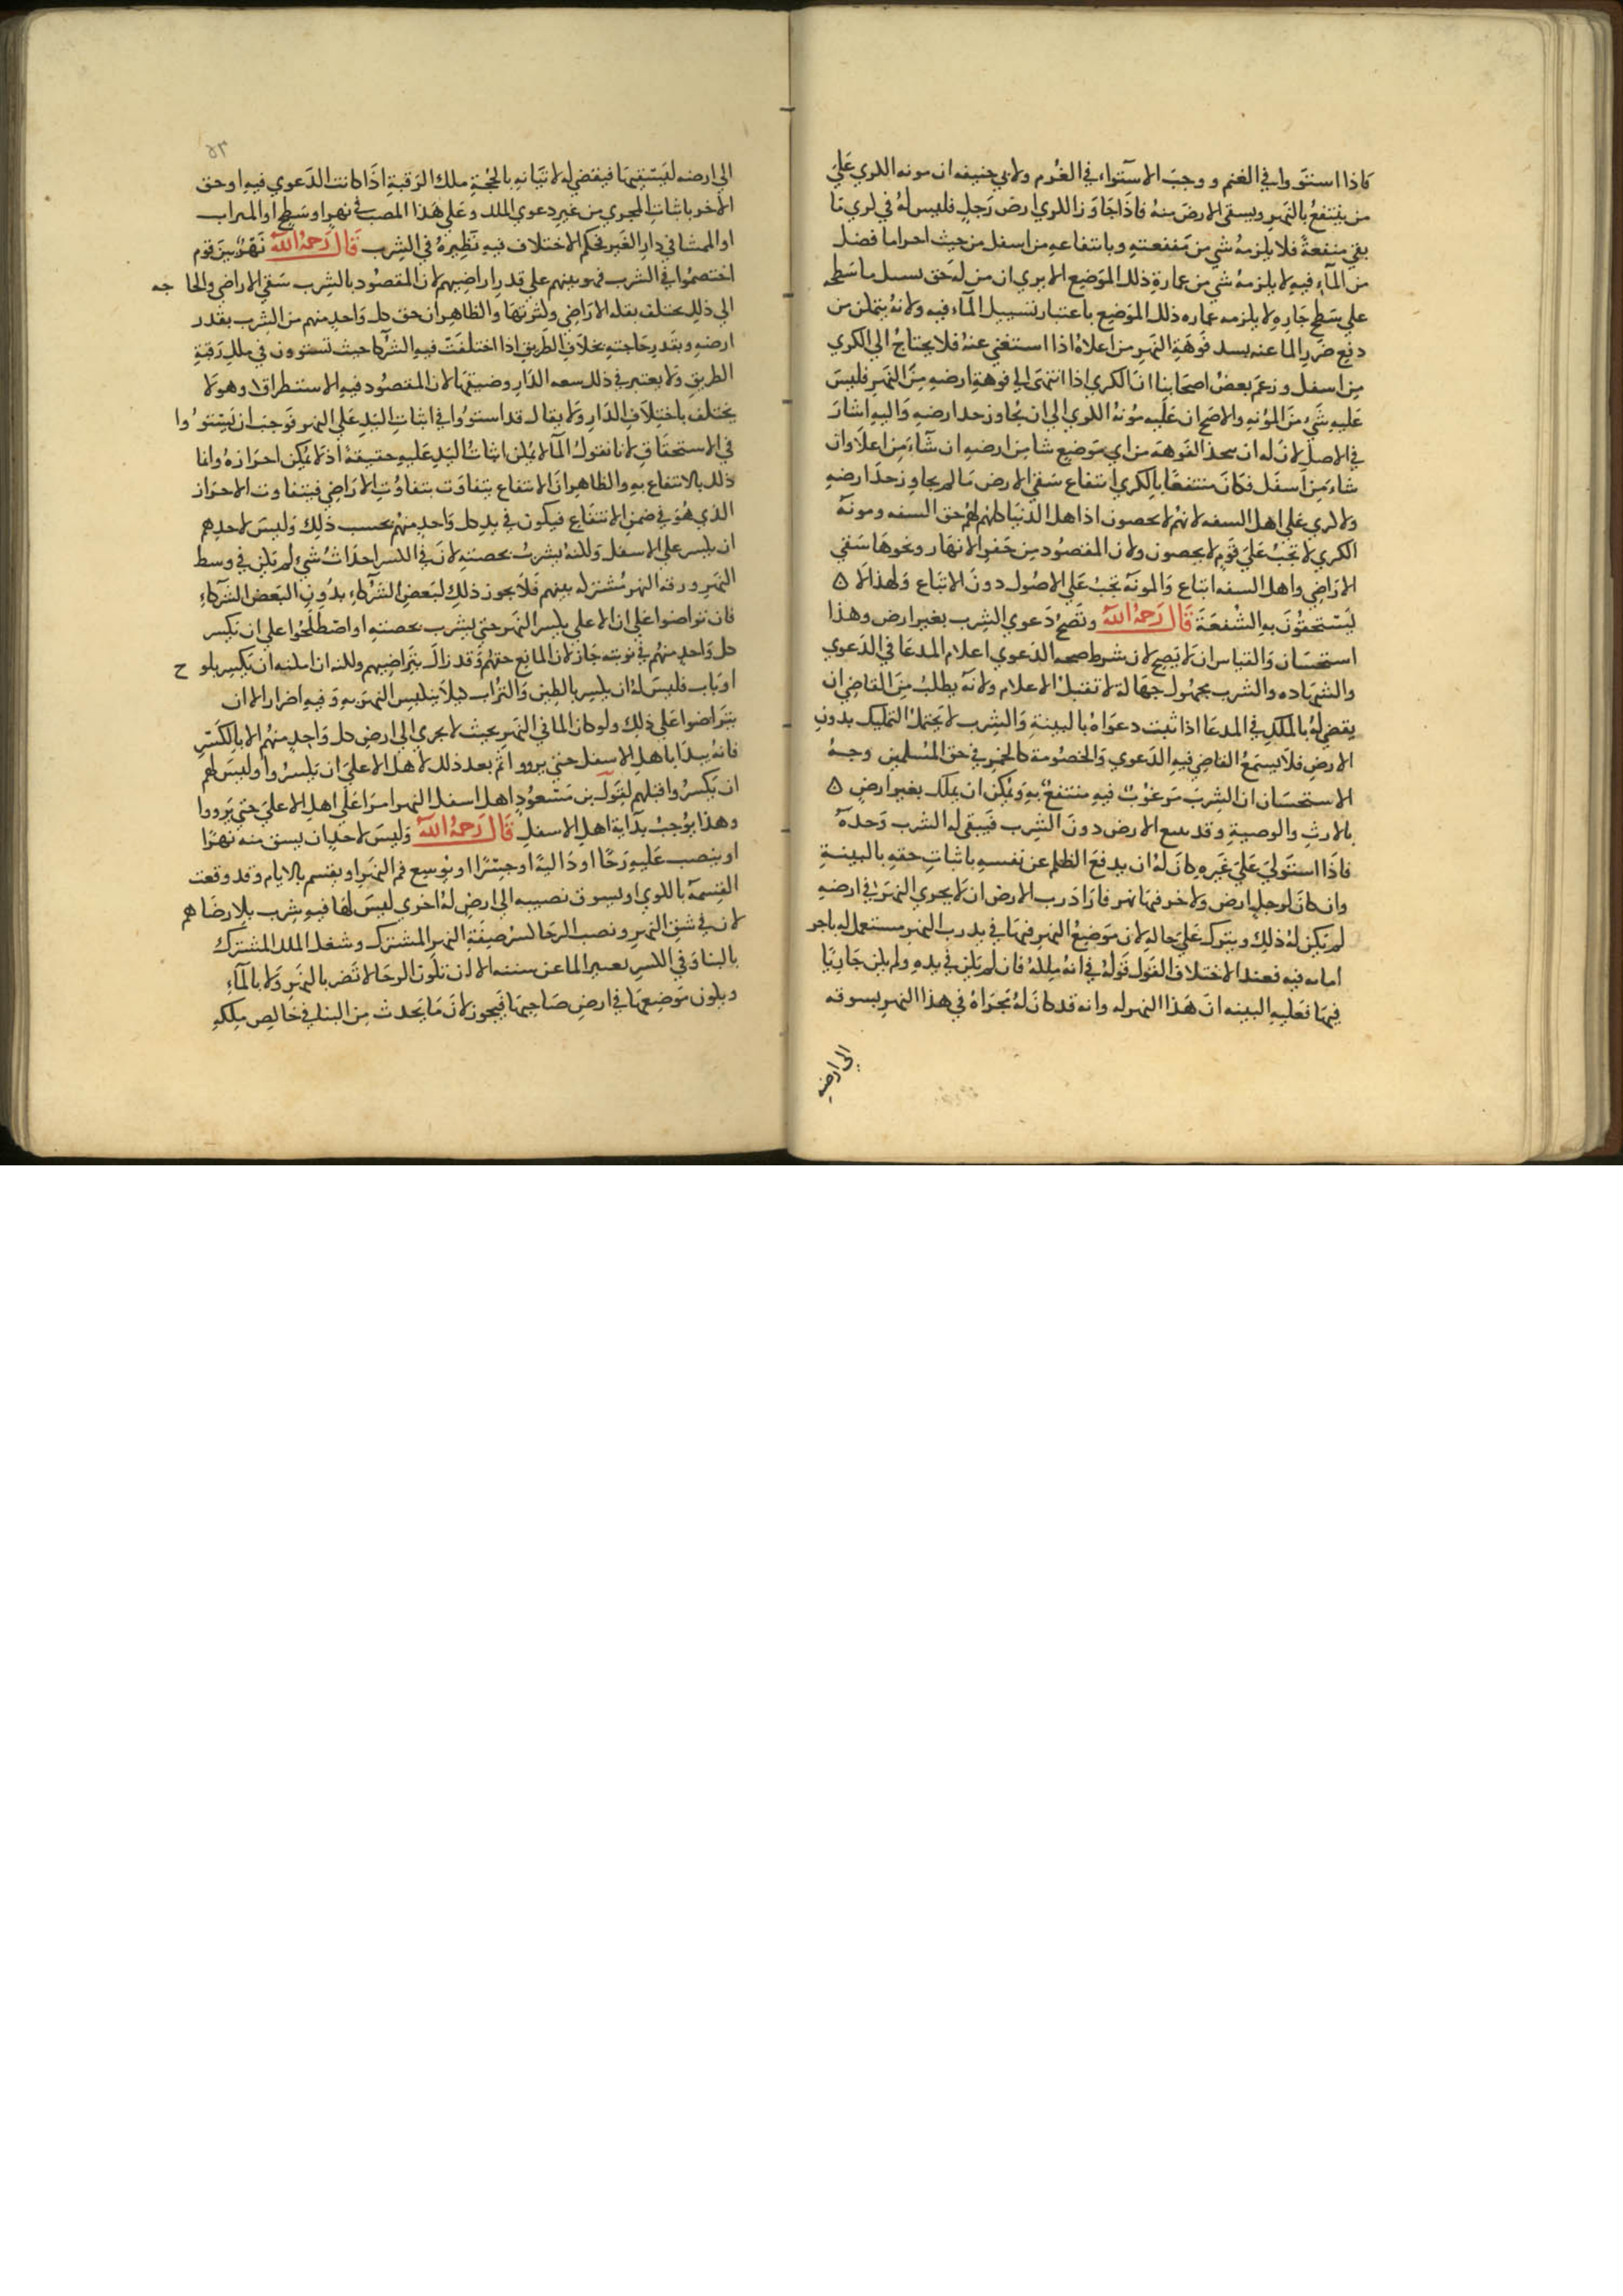 فاذا استووا في الغنم ووجب الاستواء في الغرم ولابي حنيفه ان مونه الكري علي
من ينتفع بالنهر ويسقي الارض منه فاذا جاوز الكري ارض رجل فليس له في كري ما
بقي منفعة فلا يلزمه شي من مننعته وبانتفاعه من اسفل من حيث اجرا ما فضل
من الماء فيه لا يلزمه شي من عمارة ذلك الموضع الا يري ان من له حق تسييل ما سطحه
علي سطح جاره لا يلزمه عماره ذلك الموضع باعتبار تسييل الماء فيه ولانه يتمكن من
دفع ضرر الما عنه بسد فوهة النهر من اعلاه اذا استغني عنه فلا يحتاج الي الكري
من اسفل وزعم بعض اصحابنا ان الكري اذا انتهي الي فوهة ارضه من النهر فليس
عليه شي من المونه والاصح ان عليه مونة الكري الي ان يجاوز حد ارضه واليه اشار
في الاصل لان له ان يتخذ الفوهه من اي موضع شا من ارضه ان شاء من اعلا وان
شاء من اسفل فكان منتفعا بالكري انتفاع سقي الارض ما لم يجاوز حد ارضه
ولا كري علي اهل الشفه لانهم لا يحصون اذ اهل الدنيا كلهم لهم حق الشفه ومونة
الكري لا تجب علي قوم لا يحصون ولان المقصود من حفر الانهار ونحوها سقي
الاراضي واهل الشفه اتباع والمونة تجب علي الاصول دون الاتباع ولهذا لا ه
يستحقون به الشفعة قال رحمه الله وتصح دعوي الشرب بغير ارض وهذا
استحسان والقياس ان لا يصح لان شرط صحه الدعوي اعلام المدعا في الدعوي
والشهاده والشرب مجهول جهالة لا تقبل الاعلام ولانه يطلب من القاضي ان
يقضي له بالملك في المدعا اذا ثبت دعواه بالبينة والشرب لا يحتمل التمليك بدون
الارض فلا يسمع القاضي فيه الدعوي والخصومة كالخمر في حق المسلمين وجه
الاستحسان ان الشرب مرغوب فيه منتفع به ويمكن ان يملك بغير ارض ه
بالارث والوصية وقد يبيع الارض دون الشرب فيبقي له الشرب وحده
فاذا استولي علي غيره كان له ان يدفع الظلم عن نفسه باثبات حقه بالبينة
وان كان لرجل ارض ولاخر فيها نهر فاراد رب الارض ان لا يجري النهر في ارضه
لم يكن له ذلك ويترك علي حاله لان موضع النهر فيها في يد رب النهر مستعمل له باجر
امايه فيه فعند الاختلاف القول قوله في انه ملكه فان لم يكن في يده ولم يكن جاريا
فيها فعليه البينه ان هذا النهر له وانه قد كان له مجراه في هذا النهر يسوقه
الي ارضه
٥٣
الي ارضه ليسقيها فيقضي له لاتيانه بالحجة ملك الرقبة اذا كانت الدعوي فيه او حق
الاخر باثبات المجري من غير دعوي الملك وعلي هذا المصب في نهر او سطح او الميزاب
او الممشا في دار الغير فحكم الاختلاف فيه نظيره في الشرب قال رحمه الله نهر بين قوم
اختصموا في الشرب فهو بينهم علي قدر اراضيهم لان المقصود بالشرب سقي الاراضي والحا جه
الي ذلك يختلف بقله الاراضي وكثرتها والظاهر ان حق كل واحد منهم من الشرب بقدر
ارضه وبقدر حاجته بخلاف الطريق اذا اختلفت فيه الشركا حيث تستوون في ملك رقبة
الطريق ولا يعتبر في ذلك سعه الدار وضيقها لان المقصود فيه الاستطراق وهو لا
يختلف باختلاف الدار ولا يقال قد استووا في اثبات اليد علي النهر فوجب ان يستو وا
في الاستحقاق لانا نقول الما لا يمكن اثبات اليد عليه حقيقة اذ لا يمكن احرازه وانما
ذلك بالانتفاع به والظاهر ان الانتفاع يتفاوت بتفاوت الاراضي فيتفاوت الاحراز
الذي هو في ضمن الانتفاع فيكون في يد كل واحد منهم بحسب ذلك وليس لاحدهم
ان يكسر علي الاسفل ولكنه يشرب بحصته لان في الكسر احداث شي لم يكن في وسط
النهر ورقبة النهر مشتركه بينهم فلا يجوز ذلك لبعض الشركاء بدون البعض الشركاء
فان تراضوا علي ان الاعلي يكسر النهر حتي يشرب بحصته او اصطلحوا علي ان يكسر
كل واحد منهم في نوبته جاز لان المانع حقهم وقد زال بتراضيهم ولكنه ان امكنه ان يكسر بلو ح
او باب فليس له ان يكسر بالطين والتراب كيلا ينكبس النهر به وفيه اضرار الا ان
يتراضوا علي ذلك ولو كان الما في النهر بحيث لا يجري الي ارض كل واحد منهم الا بالكسر
فانه يبدا باهل الاسفل حتي يرووا ثم بعد ذلك لاهل الاعلي ان يكسروا وليس لهم
ان يكسروا قبلهم لقول بن مسعود اهل اسفل النهر امرا علي اهل الاعلي حتي يرووا
وهذا يوجب بداية اهل الاسفل قال رحمه الله وليس لاحد ان يشق منه نهرا
او ينصب عليه رحا او دالية او جسرا او يوسع فم النهر او يقتسم بالايام وقد وقعت
القسمة بالكوي او يسوق نصيبه الي ارض له اخري ليس لها فيه شرب بلا رضا هم
لان في شق النهر ونصب الرحا كسر ضفة النهر المشترك وشغل الملك المشترك
بالبنا وفي الكسر تغيير الما عن سننه الا ان تكون الرحا لا تضر بالنهر ولا بالماء
ويكون موضعها في ارض صاحبها فيجوز لان ما يحدث من البنا في خالص ملكه